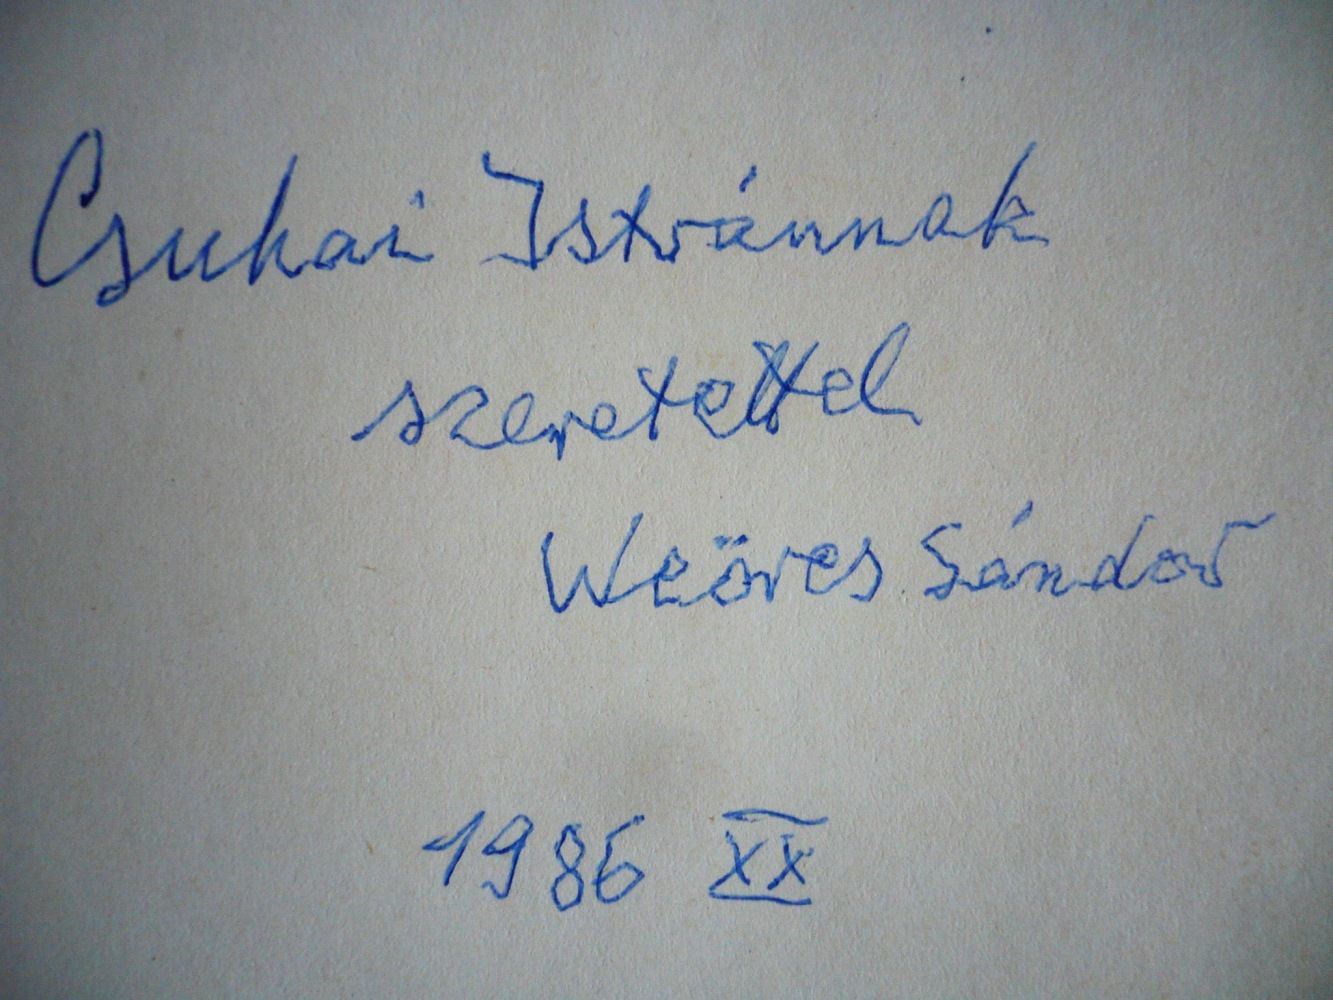 Csukai Istvánnak
szeretettel
Weöres Sándor
1986 XX